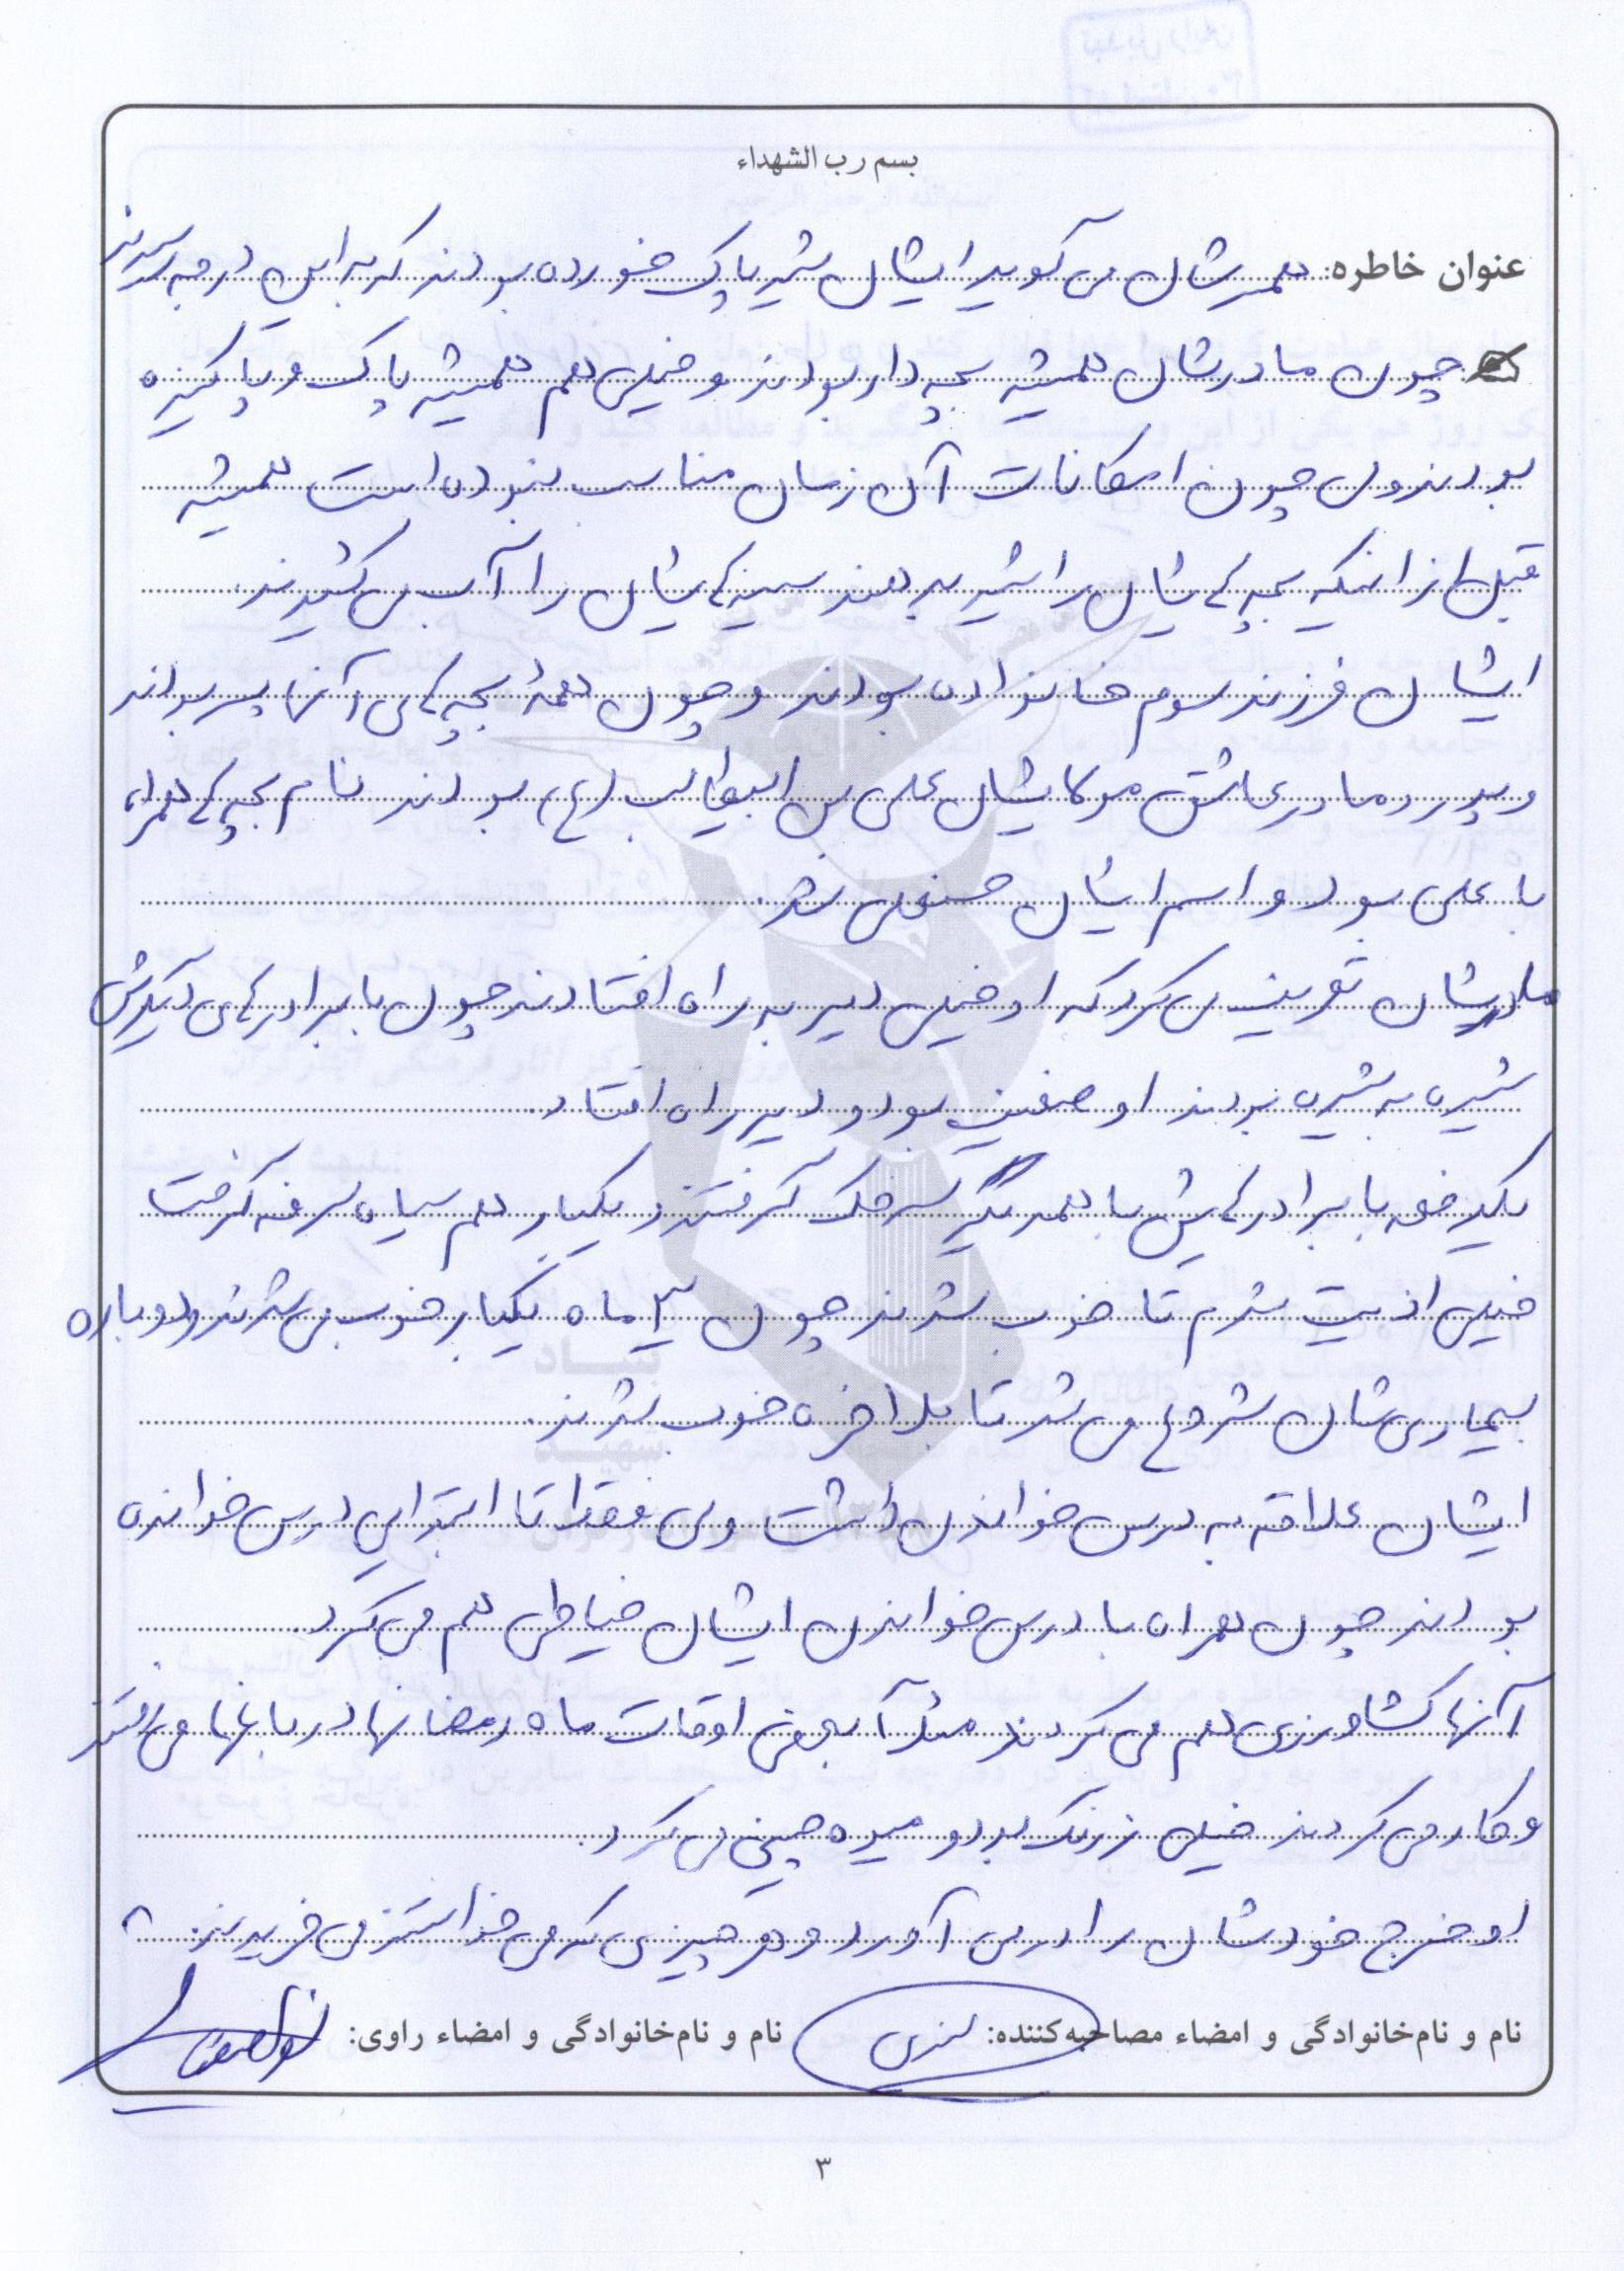 بسم رب الشهداء
عنوان خاطره: همسرشان می گوید ایشان شیر پاک خورده بودند که به این درجه رسیدند
چون مادرشان همیشه بچه دار بودند و خیلی هم همیشه پاک و پاکیزه
بودند ولی چون امکانات آن زمان مناسب نبوده است همیشه
قبل از اینکه بچه هایشان را شیر بدهند سینه هایشان را آب می کشیدند.
ایشان فرزند سوم خانواده بودند و چون همهٔ بچه های آنها پسر بودند
و پدر و مادر عاشق مولایشان علی بن ابیطالب (ع) بودند نام بچه ها همراه
با علی بود و اسم ایشان حسنعلی شد.
مادرشان تعریف می کرد که او خیلی دیر به راه افتادند چون با برادرهای دیگرش
شیره به شیره بودند او ضعیف بود و دیر راه افتاد.
یکدفعه با برادرهایش با همدیگر سرخک گرفتند و یکبار هم سیاه سرفه گرفت
خیلی اذیت شدم تا خوب شدند چون ۳ ماه یکبار خوب می شدند و دوباره
بیماری شان شروع می شد تا بلاخره خوب شدند.
ایشان علاقه به درس خواندن داشت ولی فقط تا ابتدایی درس خوانده
بودند چون همراه با درس خواندن ایشان خیاطی هم می کرد.
آنها کشاورزی هم می کردند مثلاً بعضی اوقات ماه رمضانها در باغها می رفتند
و کار می کردند خیلی زرنگ بود و میوه چینی می کرد.
او خرج خودشان را در می آورد و هر چیزی که می خواستند می خریدند.
نام و نام‌خانوادگی و امضاء مصاحبه‌کننده: نام و نام‌خانوادگی و امضاء راوی:
۳